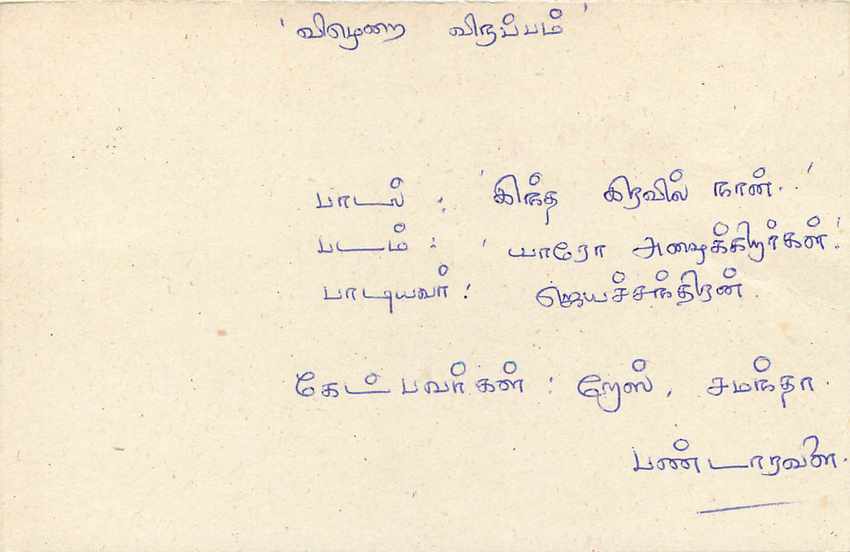 'விடுமுறை விருப்பம்'
பாடல் : 'இந்த இரவில் நான்..'
படம் : 'யாரோ அழைக்கிறார்கள்.'
பாடியவர் : ஜெயச்சந்திரன்.
கேட்பவர்கள் : றேஸ், சமந்தா.
பண்டாரவளை.